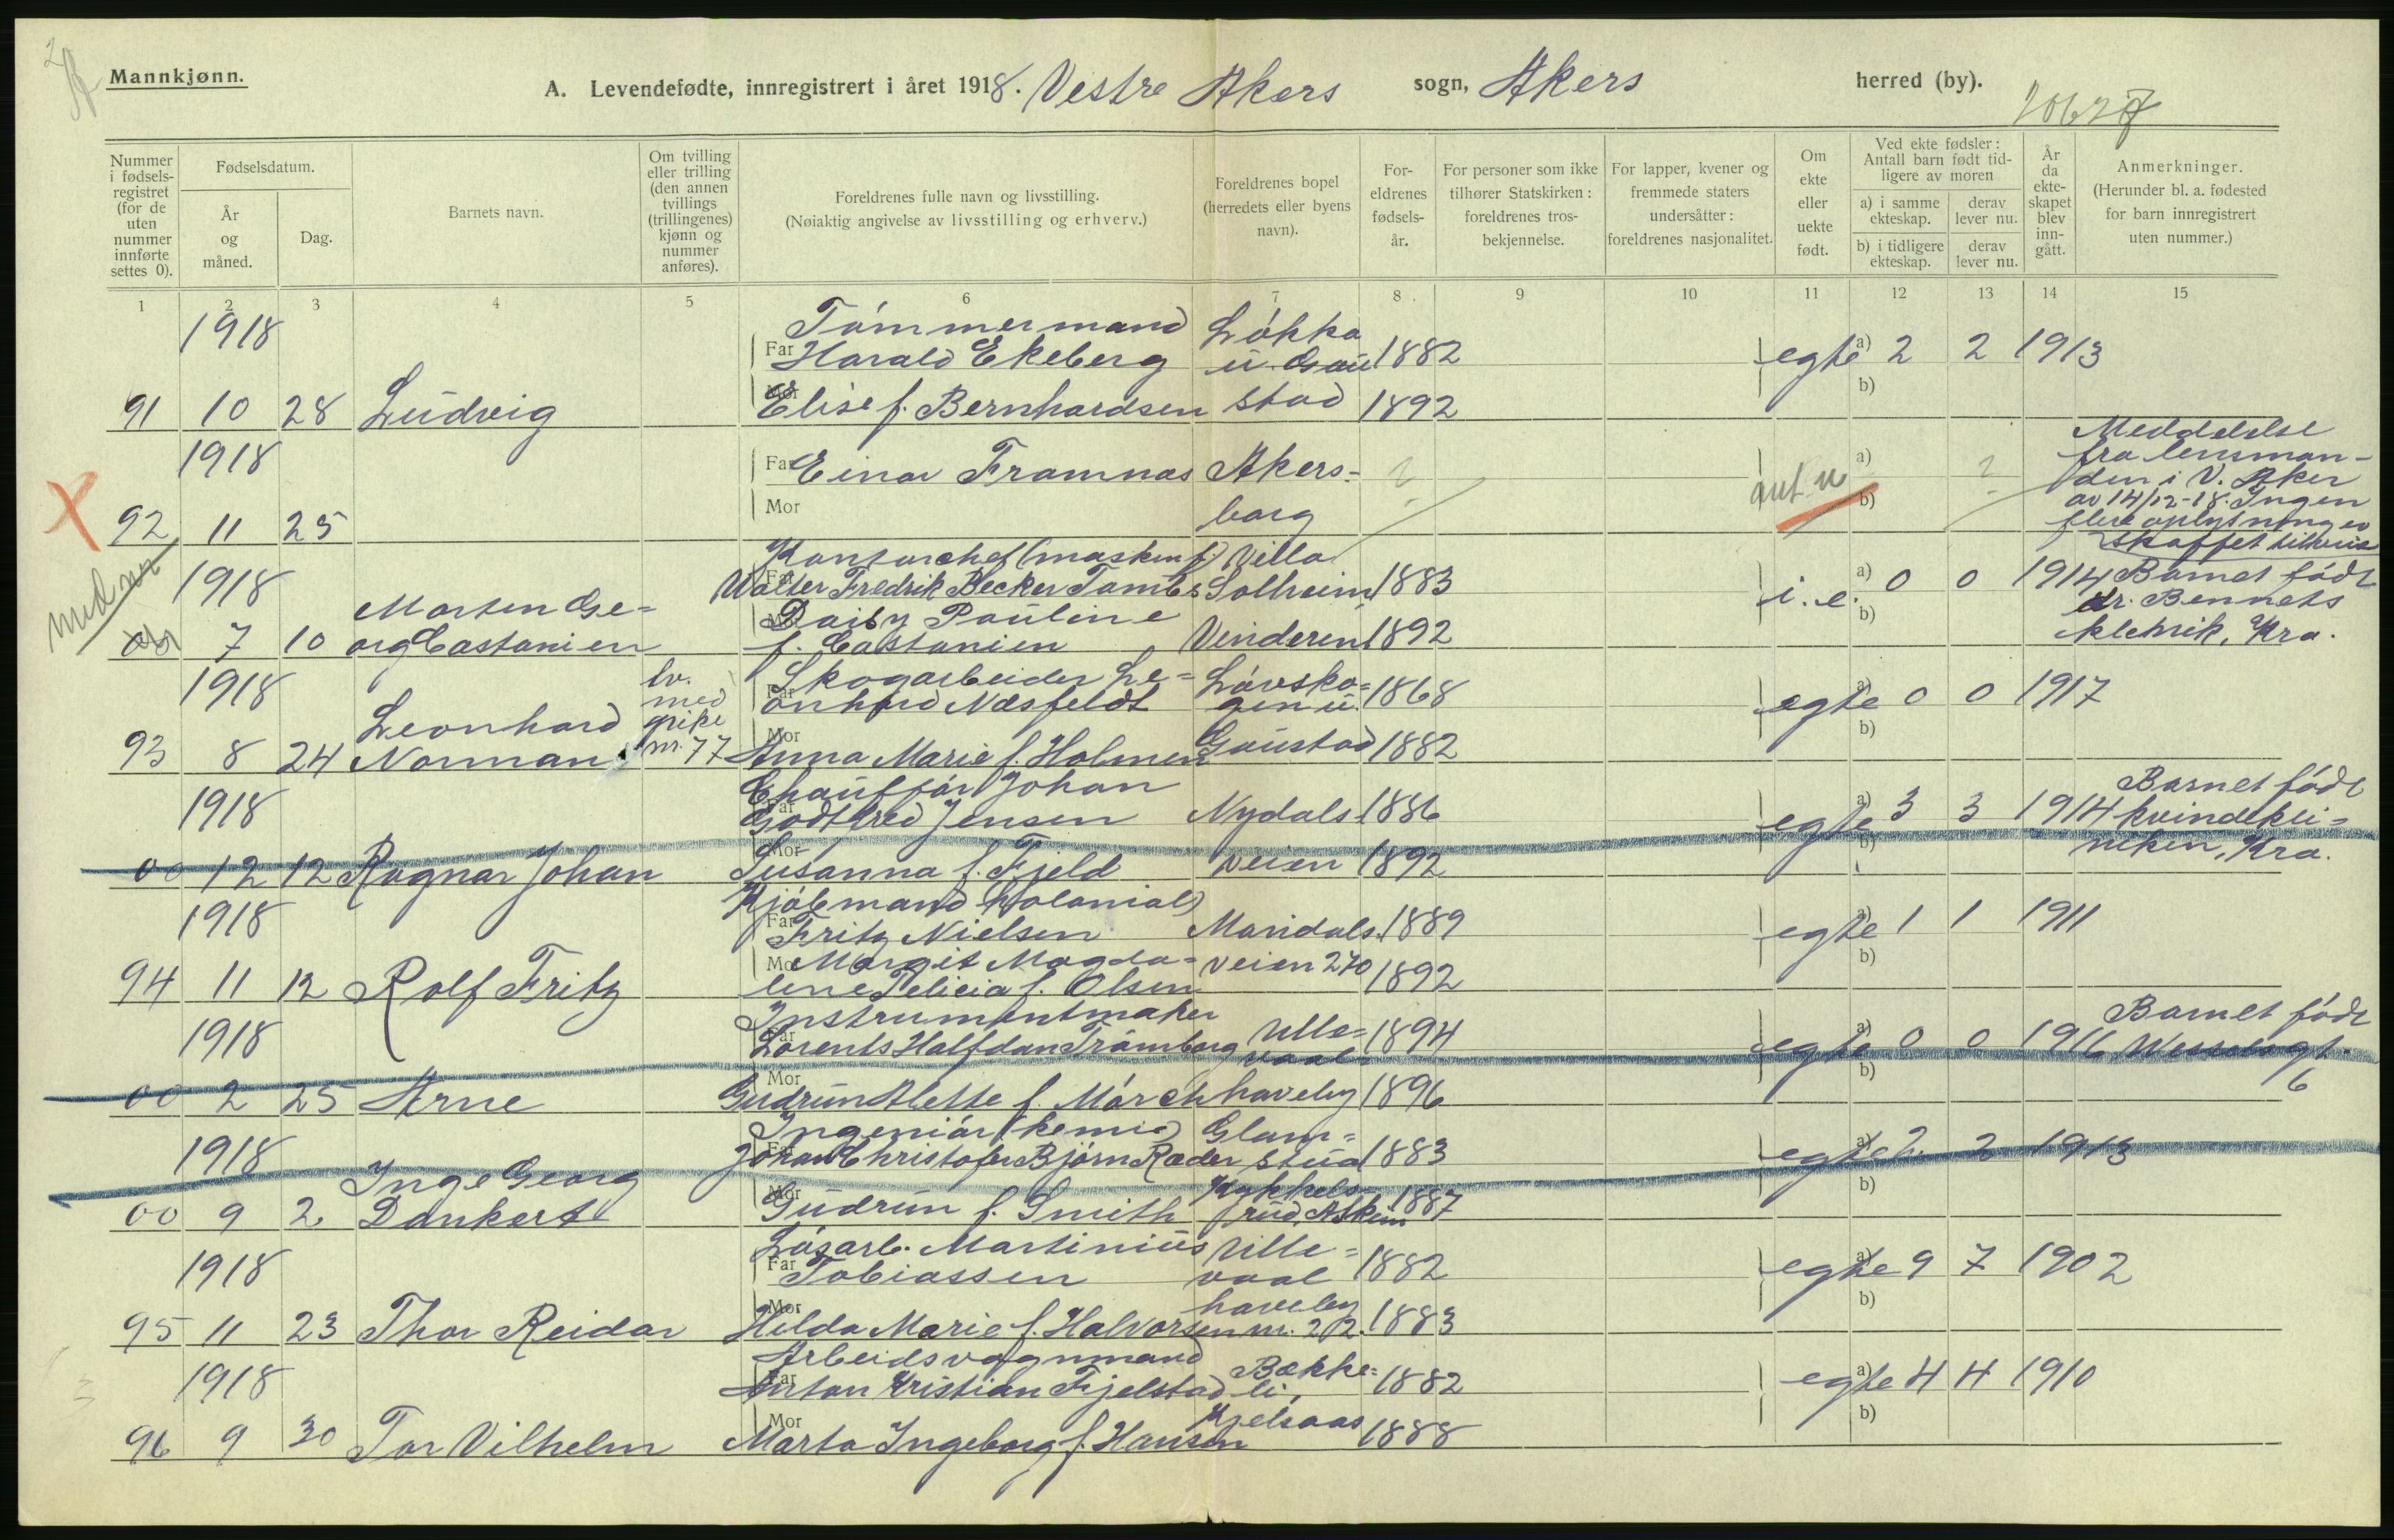 Mannkjønn.
A. Levendefødte, innregistrert i året 1918. Vestre Akers sogn, Akers herred (by).
Nummer i fødsels-registret (for de uten nummer innførte settes 0).
Fødselsdatum.
År og måned.
Dag.
Barnets navn.
Om tvilling eller trilling (den annen tvillings (trillingenes) kjønn og nummer anføres).
Foreldrenes fulle navn og livsstilling.
(Nøiaktig angivelse av livsstilling og erhverv.)
Foreldrenes bopel (herredets eller byens navn).
For-eldrenes fødsels-år.
For personer som ikke tilhører Statskirken: foreldrenes tros-bekjennelse.
For lapper, kvener og fremmede staters undersåtter: foreldrenes nasjonalitet.
Om ekte eller uekte født.
Ved ekte fødsler: Antall barn født tid-ligere av moren
a) i samme ekteskap.
derav lever nu.
b) i tidligere ekteskap.
derav lever nu.
År da ekte-skapet blev inn-gått.
Anmerkninger.
(Herunder bl. a. fødested for barn innregistrert uten nummer.)
1 2 3 4 5 6 7 8 9 10 11 12 13 14 15
1918 Tömmermand Lökka
Far Harald Ekeberg u. Gau 1882 egte a) 2 2 1913
91 10 28 Ludvig Mor Elise f. Bernhardsen stad 1892 b)
1918 Far Einar Framnas Akers- ? ant. u a) ? Meddelelse
fra lensman-
den i V. Aker
av 14/12-18. Ingen
92 11 25 Mor borg b) flere oplysninger
skaffet tilveie
1918 Kontorchef (maskinf.) Villa
Far Walter Fredrik Becker Tambs Solheim 1883 i. e. a) 0 0 1914 Barnet födt
Morten Ge- Mor Daisy Pauline dr. Bennets
7 10 org Castanien f. Castanien Vinderen 1892 b) klinik, Kra.
1918 tv. Skogarbeider Le- Lövsko-
Leonhard med Far onhard Næsfeldt gen u. 1868 egte a) 0 0 1917
93 8 24 Norman pike nr. 77 Mor Anna Marie f. Holmen Gaustad 1882 b)
1918 Chaufför Johan Barnet födt
Far Godtfred Jensen Nydals 1886 egte a) 3 3 1914 kvindekli-
00 12 12 Ragnar Johan Mor Susanna f. Fjeld veien 1892 b) niken, Kra.
1918 Kjöbmand (kolonial)
Far Fritz Nielsen Maridals 1889 egte a) 1 1 1911
Mor Margit Magda- veien 270
94 11 12 Rolf Fritz lene Felicia f. Olsen 1892 b)
1918 Instrumentmaker Barnet födt
Far Lorents Halfdan Trömborg Ulle- 1894 egte a) 0 0 1916 Wesselsgt.
vaal
00 2 25 Arne Mor Gudrun Alette f. Mörch haveby 1896 b) 6
1918 Ingeniör (kemi) Glam-
Far Johan Christofer Björn Ræder stud 1883 egte a) 2 2 1913
Inge Georg Kykkels-
00 9 2 Dankert Mor Gudrun f. Smith rud, Askim 1887 b)
1918 Lösarb. Martinius Ulle-
Far Tobiassen vaal 1882 egte a) 9 7 1902
haveby
95 11 23 Thor Reidar Mor Hilda Marie f. Halvorsen nr. 212. 1883 b)
1918 Arbeidsvognmand Bække-
Far Anton Kristian Fjelstad li, 1882 egte a) 4 4 1910
Kjelsaas
96 9 30 Tor Vilhelm Mor Marta Ingeborg f. Hansen 1888 b)